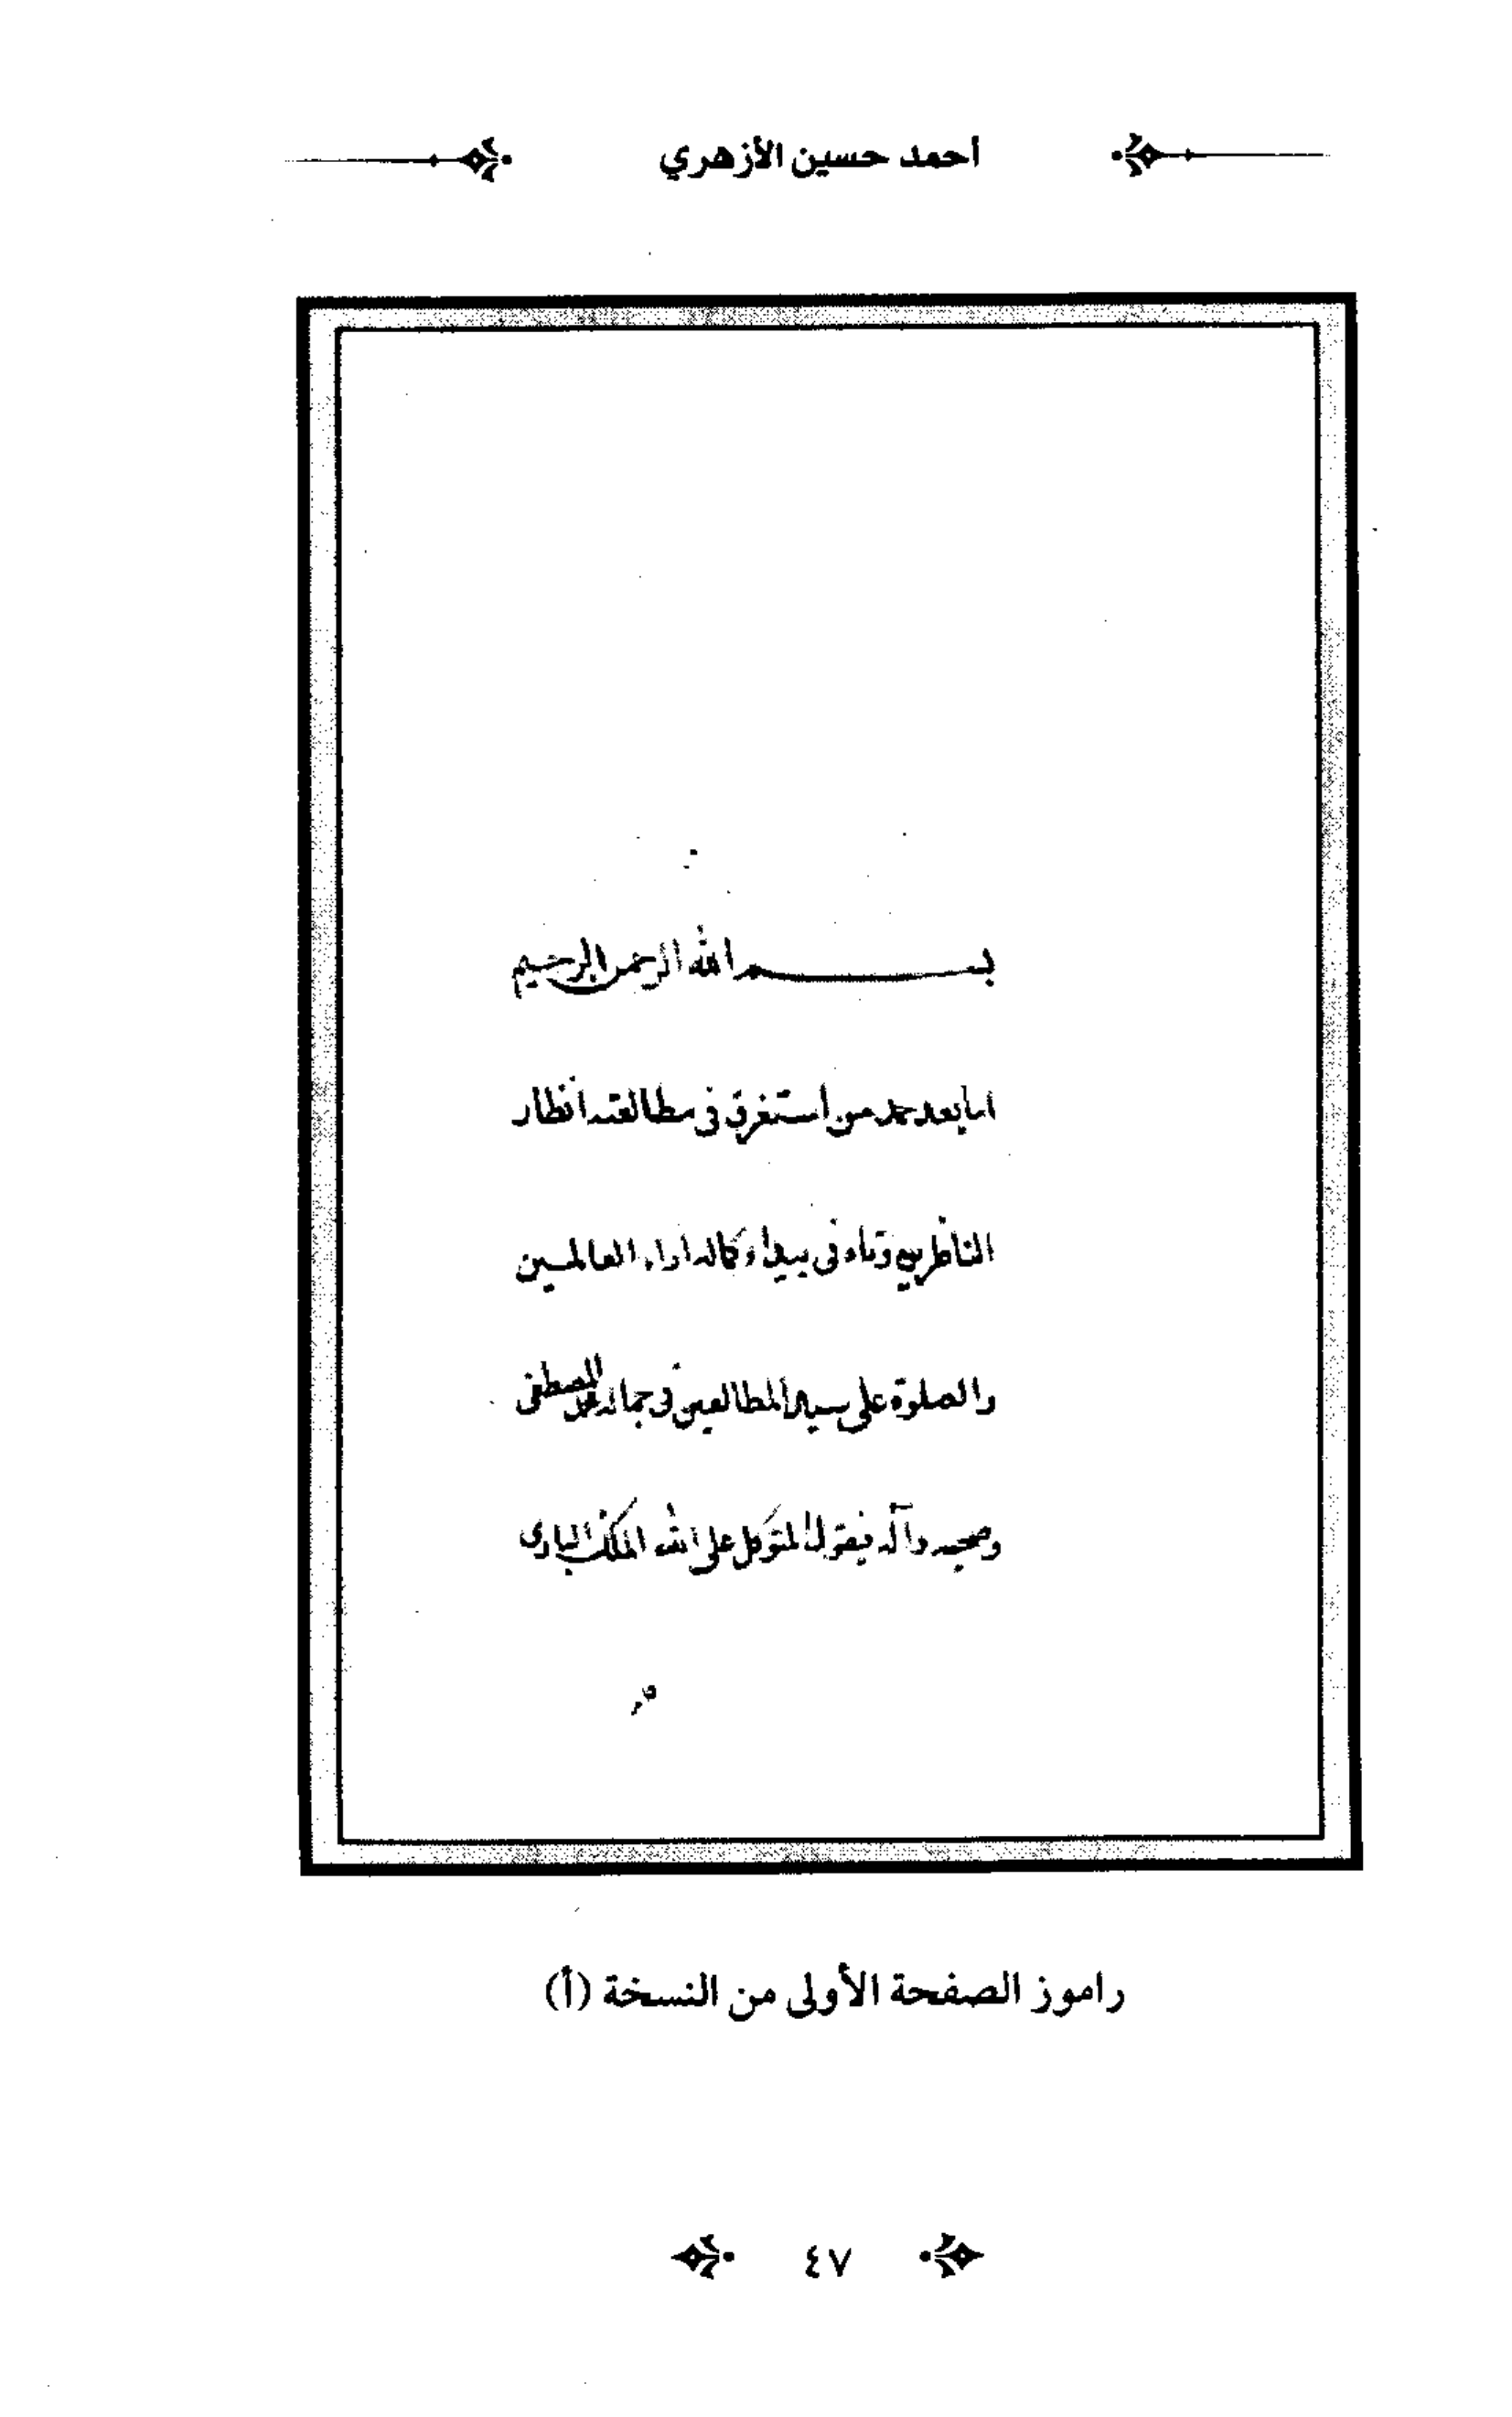 أحمد حسين الأزهري
بسم الله الرحمن الرحيم
اما بعد حمد من استغرق فى مطالعته انظار
الناظرين وتاه فى بيداء كماله اراء العالمين
والصلوة على سيد المطالعين فى جماله محمد المصطفى
وصحبه وآله فيقول المتوكل على الله الملك البارى
راموز الصفحة الأولى من النسخة (أ)
٤٧